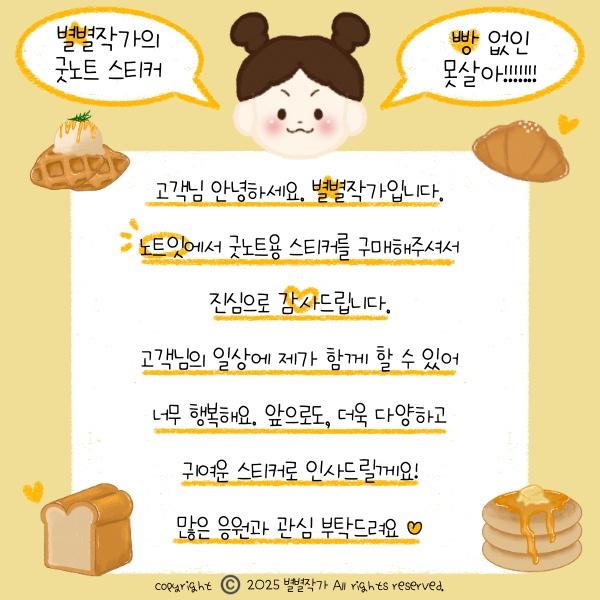 별별작가의
굿노트 스티커
빵 없인
못살아!!!!!!!
고객님 안녕하세요. 별별작가입니다.
노트잇에서 굿노트용 스티커를 구매해주셔서
진심으로 감사드립니다.
고객님의 일상에 제가 함께 할 수 있어
너무 행복해요. 앞으로도, 더욱 다양하고
귀여운 스티커로 인사드릴게요!
많은 응원과 관심 부탁드려요
copyright © 2025 별별작가 All rights reserved.